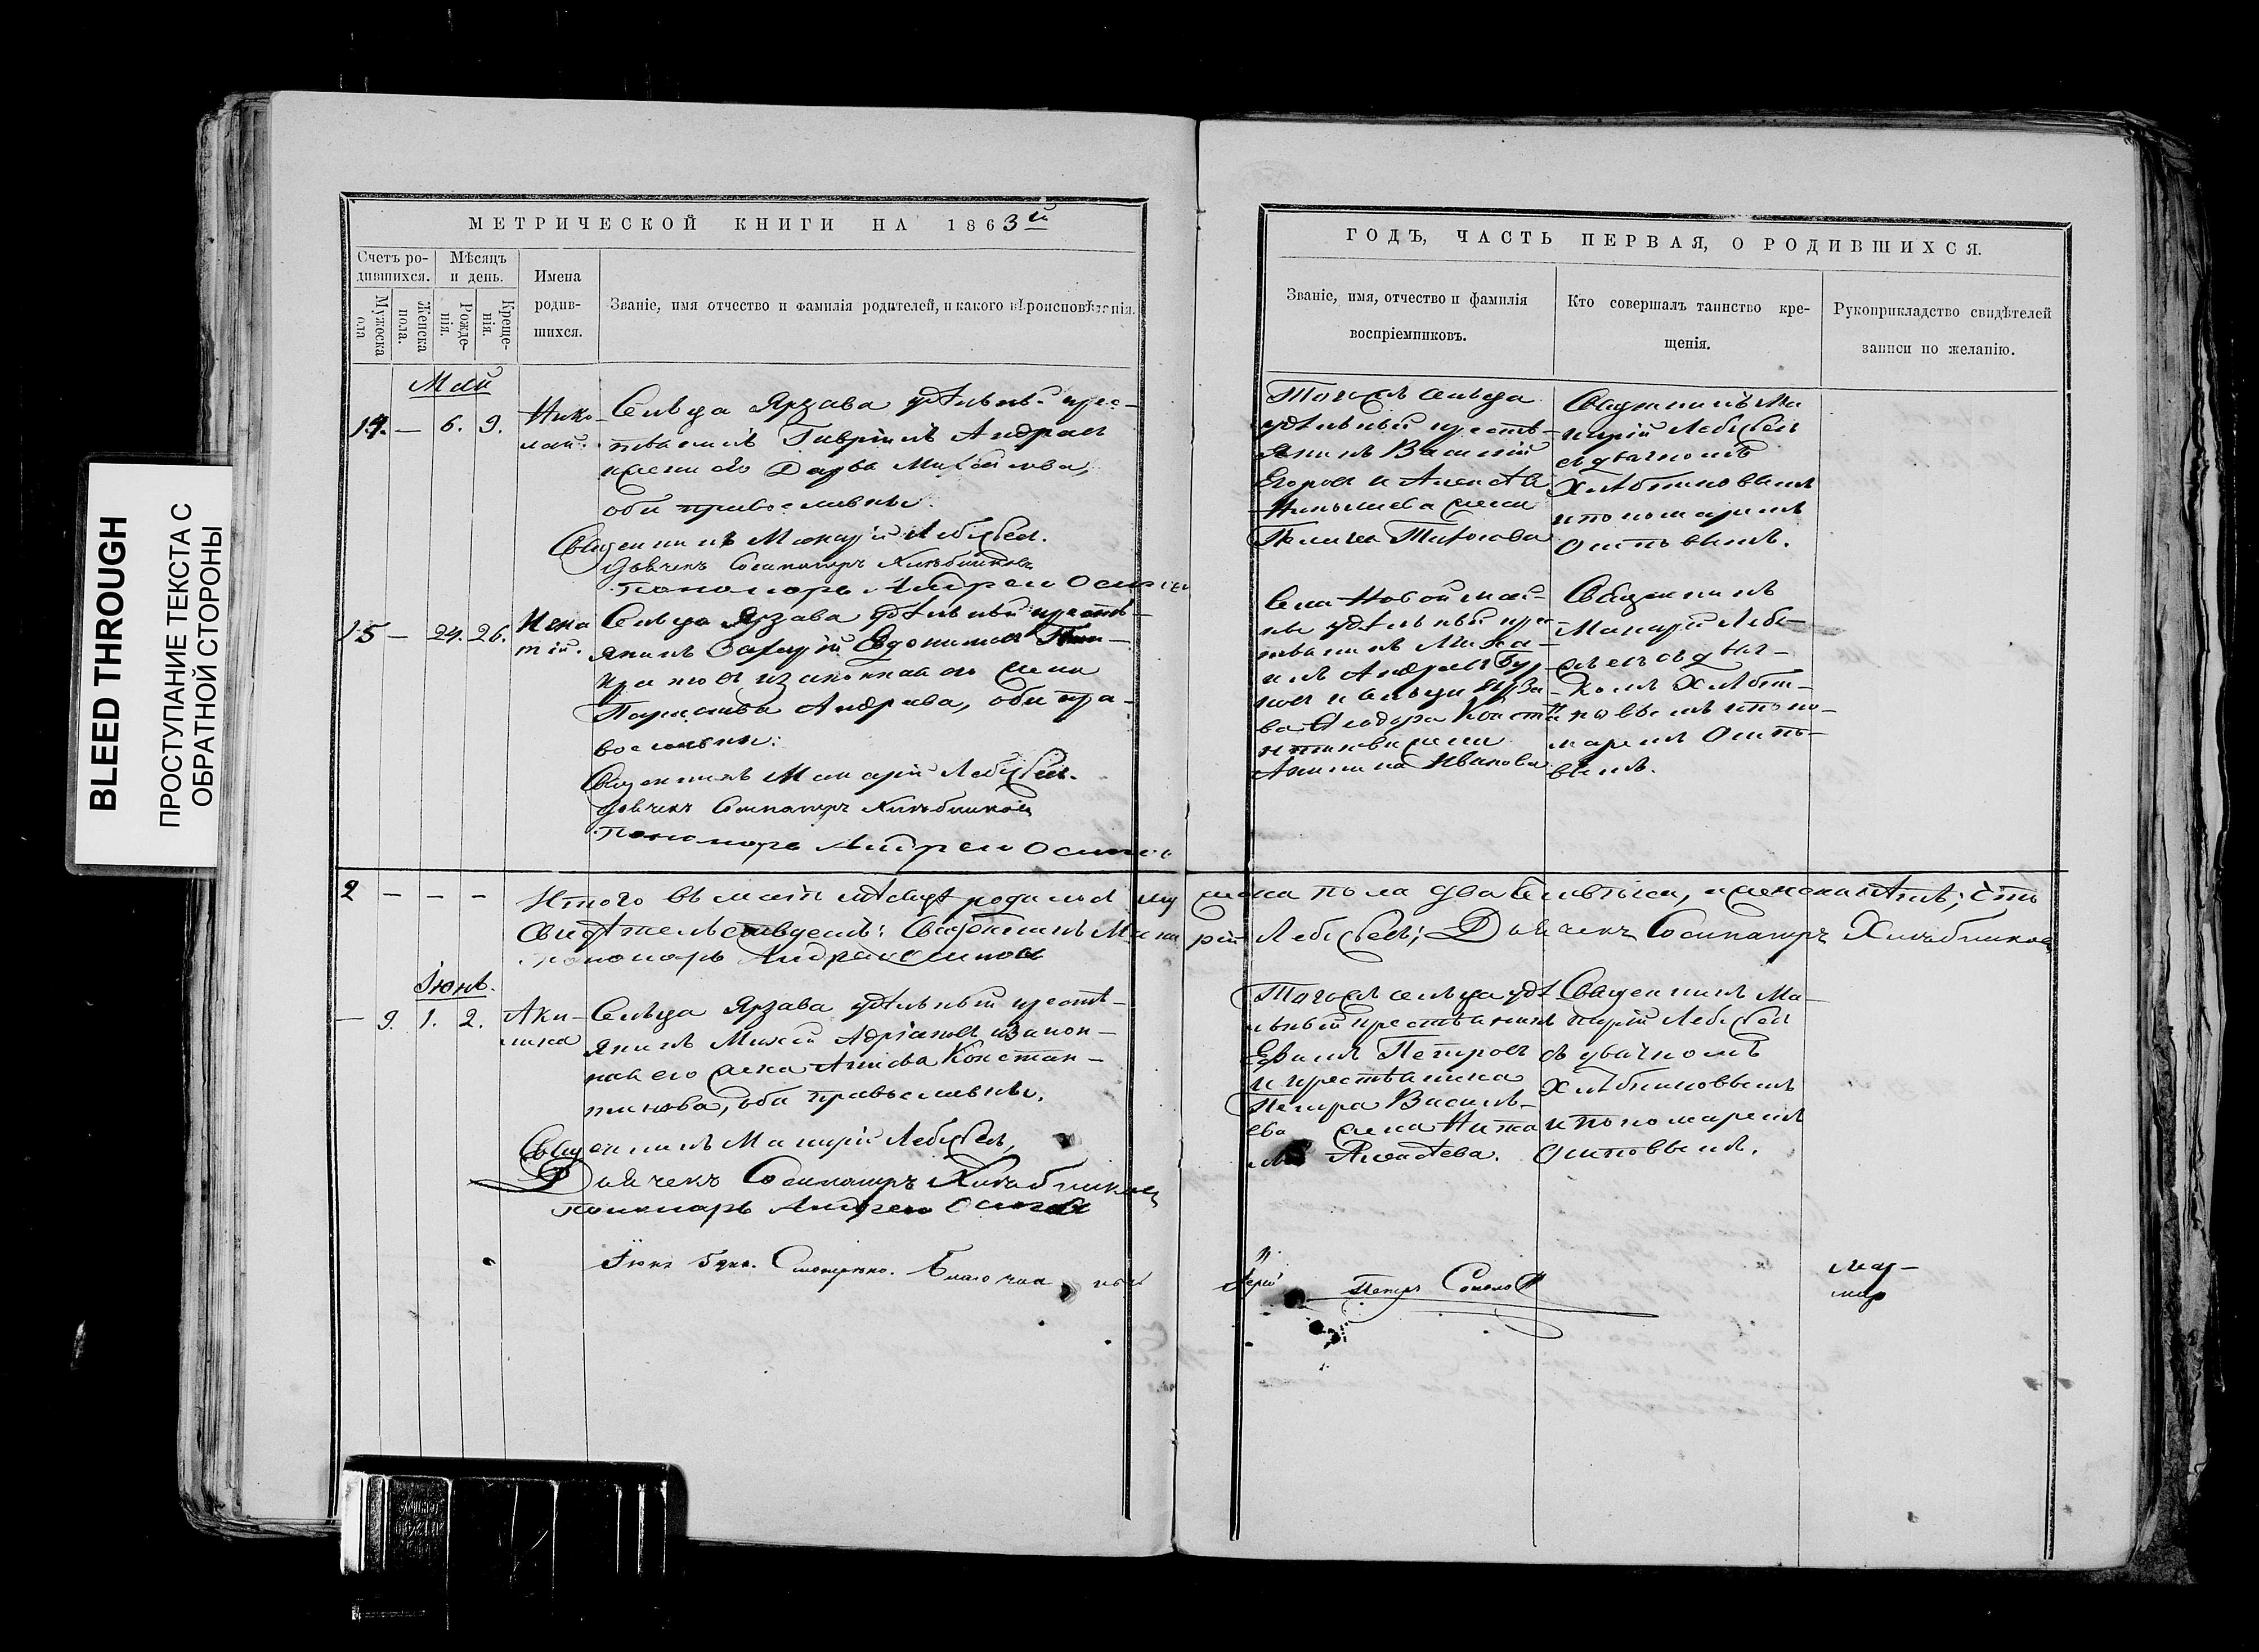 BLEED THROUGH
ПРОСТУПАНИЕ ТЕКСТА С
ОБРАТНОЙ СТОРОНЫ
МЕТРИЧЕСКОЙ КНИГИ НА 1863й
Счетъ ро-
дившихся.
Мѣсяцъ
и день.
Мужеска
пола
Женска
пола.
Рожде-
нія.
Креще-
нія.
Имена
родив-
шихся.
Званіе, имя отчество и фамилія родителей, и какого вѣроисповѣданія.
Май
14. — 6. 9. Нико-
лай.
Сельца Ярзава удѣльный крес-
тьянинъ Гавріилъ Андреевъ
жена его Дарья Михайлова,
оба православные.
Священникъ Макарій Лебедевъ.
Дьячекъ Сосипатръ Хлѣбниковъ
Пономарь Андрей Осиповъ
15 — 24. 26. Игна
тій.
Сельца Ярзава удѣльный кресть-
янинъ Захарій Евдокимовъ
законная его жена
Андреева, оба пра-
вославные.
Священникъ Макарій Лебедевъ.
Дьячекъ Сосипатръ Хлѣбниковъ
Пономарь Андрей Осиповъ
2 — — —
Итого въ маѣ мѣсяцѣ родилось му
Свидѣтельствуемъ: Священникъ Мака
Пономарь Андрей Осиповъ
Іюнь.
— 9. 1. 2. Аки-
лина
Сельца Ярзава удѣльный кресть-
янинъ Адріановъ закон-
ная его жена Констан-
тинова, оба православные.
Священникъ Макарій Лебедевъ,
Дьячекъ Сосипатръ Хлѣбниковъ
Пономарь Андрей Осиповъ
Іюня 5 дня. Смотрено. Благочин ный
ГОДЪ, ЧАСТЬ ПЕРВАЯ, О РОДИВШИХСЯ.
Званіе, имя, отчество и фамилія
воспріемниковъ.
Кто совершалъ таинство кре-
щенія.
Рукоприкладство свидѣтелей
записи по желанію.
Тогожъ сельца
удѣльный кресть-
янинъ Василій
Егоровъ и Алексѣя
жена
Титова
Священникъ Ма
карій Лебедевъ
съ дьячкомъ
Хлѣбниковымъ
и пономаремъ
Осиповымъ.
Села Новой
удѣльный кре
стьянинъ Миха-
илъ Андреевъ
и сельца Ярза
ва Ѳеодора Конста
нтинова жена
Иванова
Священникъ
Макарій Лебе-
девъ съ дьяч-
комъ Хлѣбни-
ковымъ и поно-
маремъ Осипо-
вымъ.
жеска пола два, женска
рій Лебедевъ; Дьячекъ Сосипатръ Хлѣбниковъ
Тогожъ сельца удѣ
льный крестьянинъ
Ефимъ Петровъ
и крестьянина
Петра Василь-
ева жена
Алексѣева.
Священникъ Ма-
карій Лебедевъ
съ дьячкомъ
Хлѣбниковымъ
и пономаремъ
Осиповымъ.
Іерей
Петръ Соколовъ